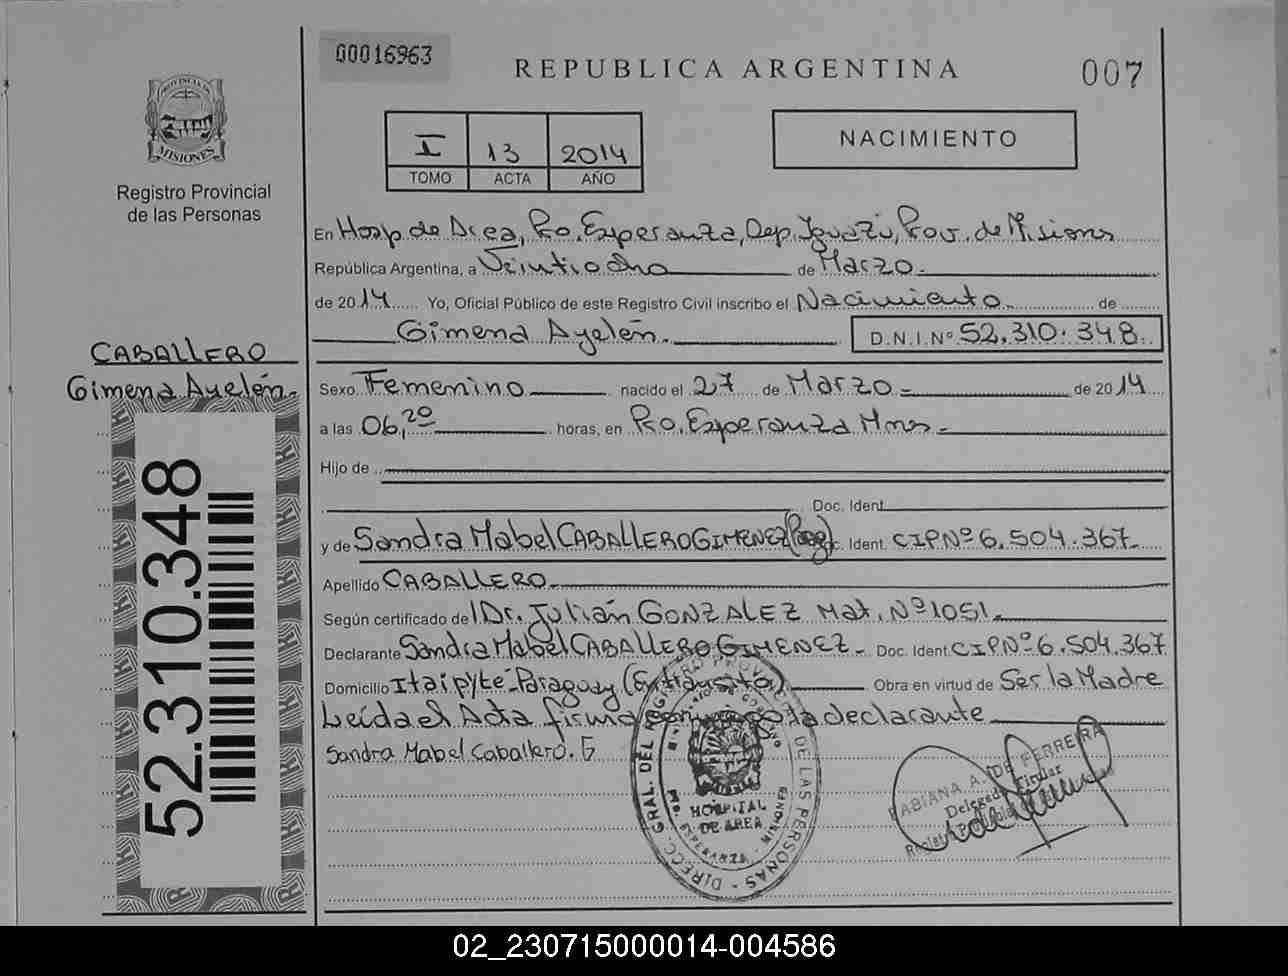 00016963
REPUBLICA ARGENTINA
007
PROVINCIA DE
MISIONES
Registro Provincial
de las Personas
I 13 2014
TOMO ACTA AÑO
NACIMIENTO
En Hosp de Area, Pto. Esperanza, Dep. Iguazú, Prov. de Misiones
República Argentina, a Veintiocho de Marzo.
de 2014 Yo, Oficial Público de este Registro Civil inscribo el Nacimiento de
Gimena Ayelén. D.N.I. Nº 52.310.348
CABALLERO
Gimena Ayelén.
52.310.348
Sexo Femenino nacido el 27 de Marzo de 2014
a las 06,20 horas, en Pto. Esperanza Mnes.
Hijo de
Doc. Ident
y de Sandra Mabel CABALLERO GIMENEZ (Parag) Ident. CIP Nº 6.504.367
Apellido CABALLERO
Según certificado de Dr. Julián GONZALEZ Mat. Nº 1051
Declarante Sandra Mabel CABALLERO GIMENEZ Doc. Ident. CIP Nº 6.504.367
Domicilio Itaipyté-Paraguay (En tránsito) Obra en virtud de Ser la Madre
Leída el Acta firma declarante
Sandra Mabel Caballero. G
DIRECC. GRAL. DEL REGISTRO PROVINCIAL DE LAS PERSONAS
HOSPITAL
DE AREA
PTO. ESPERANZA - MISIONES
FABIANA A. DE FERREIRA
Delegada Titular
02_230715000014-004586